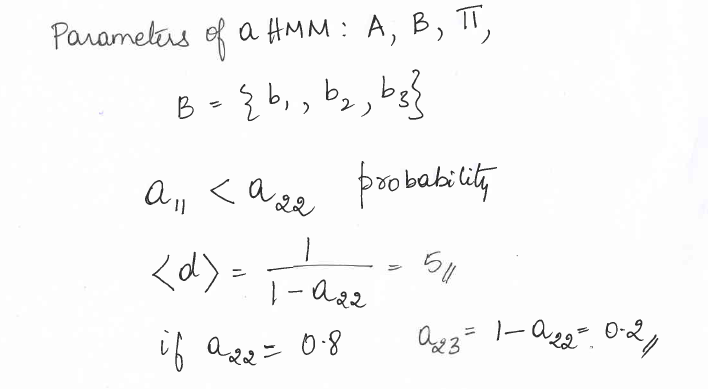 Parameters of a HMM : A, B, π,
B = { b₁, b₂, b₃}
a₁₁ < a₂₂ probability
<d> = 1 / (1 - a₂₂) = 5//
if a₂₂ = 0.8 a₂₃ = 1 - a₂₂ = 0.2//